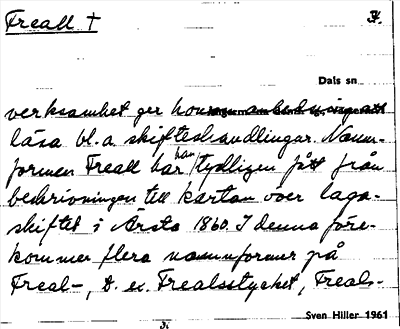 Freall †
Dals sn
verksamhet ger honom anledning att
läsa bl.a. skifteshandlingar. Namn-
formen Freall har han tydligen fått från
beskrivningen till kartan över laga-
skiftet i Årsta 1860. I denna före-
kommer flera namnformer på
Freal-, t. ex. Frealsstycket, Freals-
Sven Hiller 1961